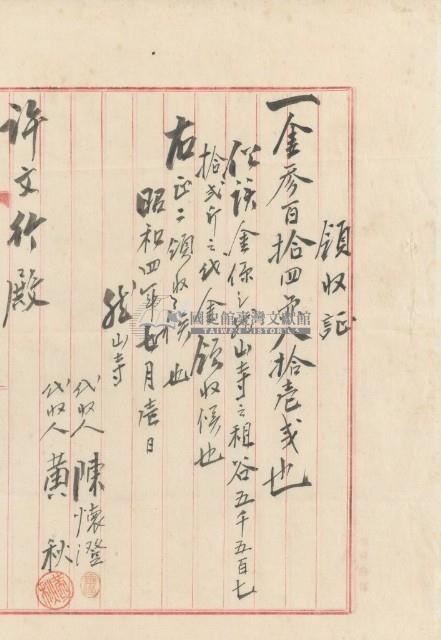 領收証
一金參百拾四円八拾壱戋也
但該金係之山寺之租谷五千五百七
拾弍斤之代金領收候也
右正ニ領收了候也
昭和四年七月壱日
山寺
代收人 陳懷澄
代收人 黃秋
許文竹殿
國史館臺灣文獻館
TAIWAN HISTORICA